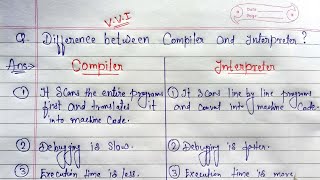 V.V.I
Date
Page
Q. Difference between Compiler and Interpreter ?
Ans:→ Compiler Interpreter
① It Scans the entire programs first and translates it into machine code.
① It Scans line by line programs and convat into machine Code.
② Debugging is Slow.
② Debugging is faster.
③ Execution time is less.
③ Execution time is more.